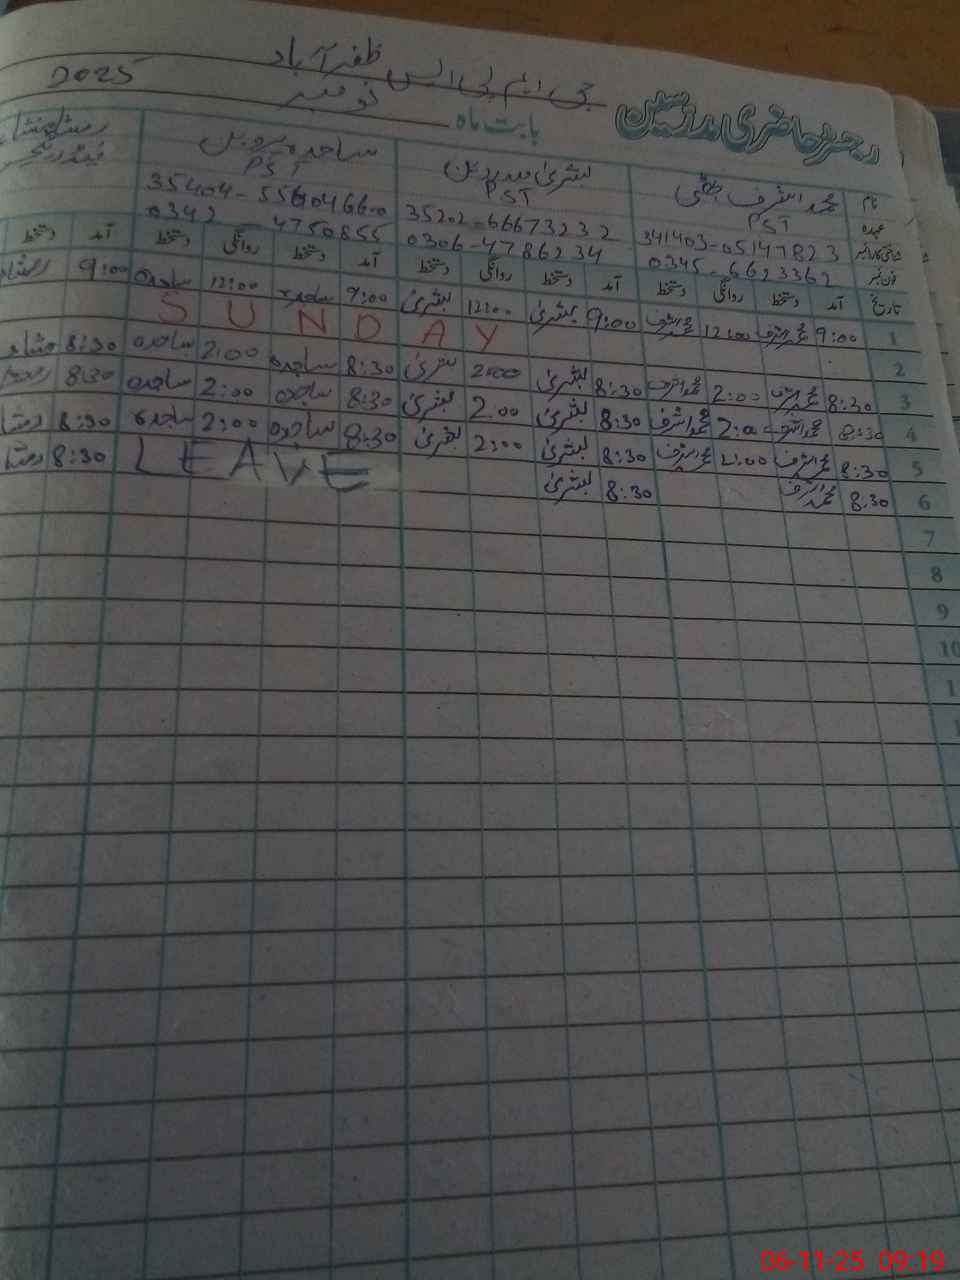 جی ایم پی ایس ظفر آباد
رجسٹر حاضری مدرسین بابت ماہ نومبر 2025
نام محمد اشرف بھٹی بشریٰ ساجدہ پروین
عہدہ PST PST PST
شناختی کارڈ نمبر 341403-05147823 35202-66673232 35404-5560466-0
فون نمبر 0345-6623362 0306-4786234 0342-4750855
تاریخ آمد دستخط روانگی دستخط آمد دستخط روانگی دستخط آمد دستخط روانگی دستخط آمد دستخط
1 9:00 محمد اشرف 12:00 محمد اشرف 9:00 بشریٰ 12:00 بشریٰ 9:00 ساجدہ 12:00 ساجدہ 9:00
2 SUNDAY
3 8:30 محمد اشرف 2:00 محمد اشرف 8:30 بشریٰ 2:00 بشریٰ 8:30 ساجدہ 2:00 ساجدہ 8:30
4 8:30 محمد اشرف 2:00 محمد اشرف 8:30 بشریٰ 2:00 بشریٰ 8:30 ساجدہ 2:00 ساجدہ 8:30
5 8:30 محمد اشرف 2:00 محمد اشرف 8:30 بشریٰ 2:00 بشریٰ 8:30 ساجدہ 2:00 ساجدہ 8:30
6 8:30 محمد اشرف 8:30 بشریٰ LEAVE 8:30
7
8
9
10
06-11-25 09:19